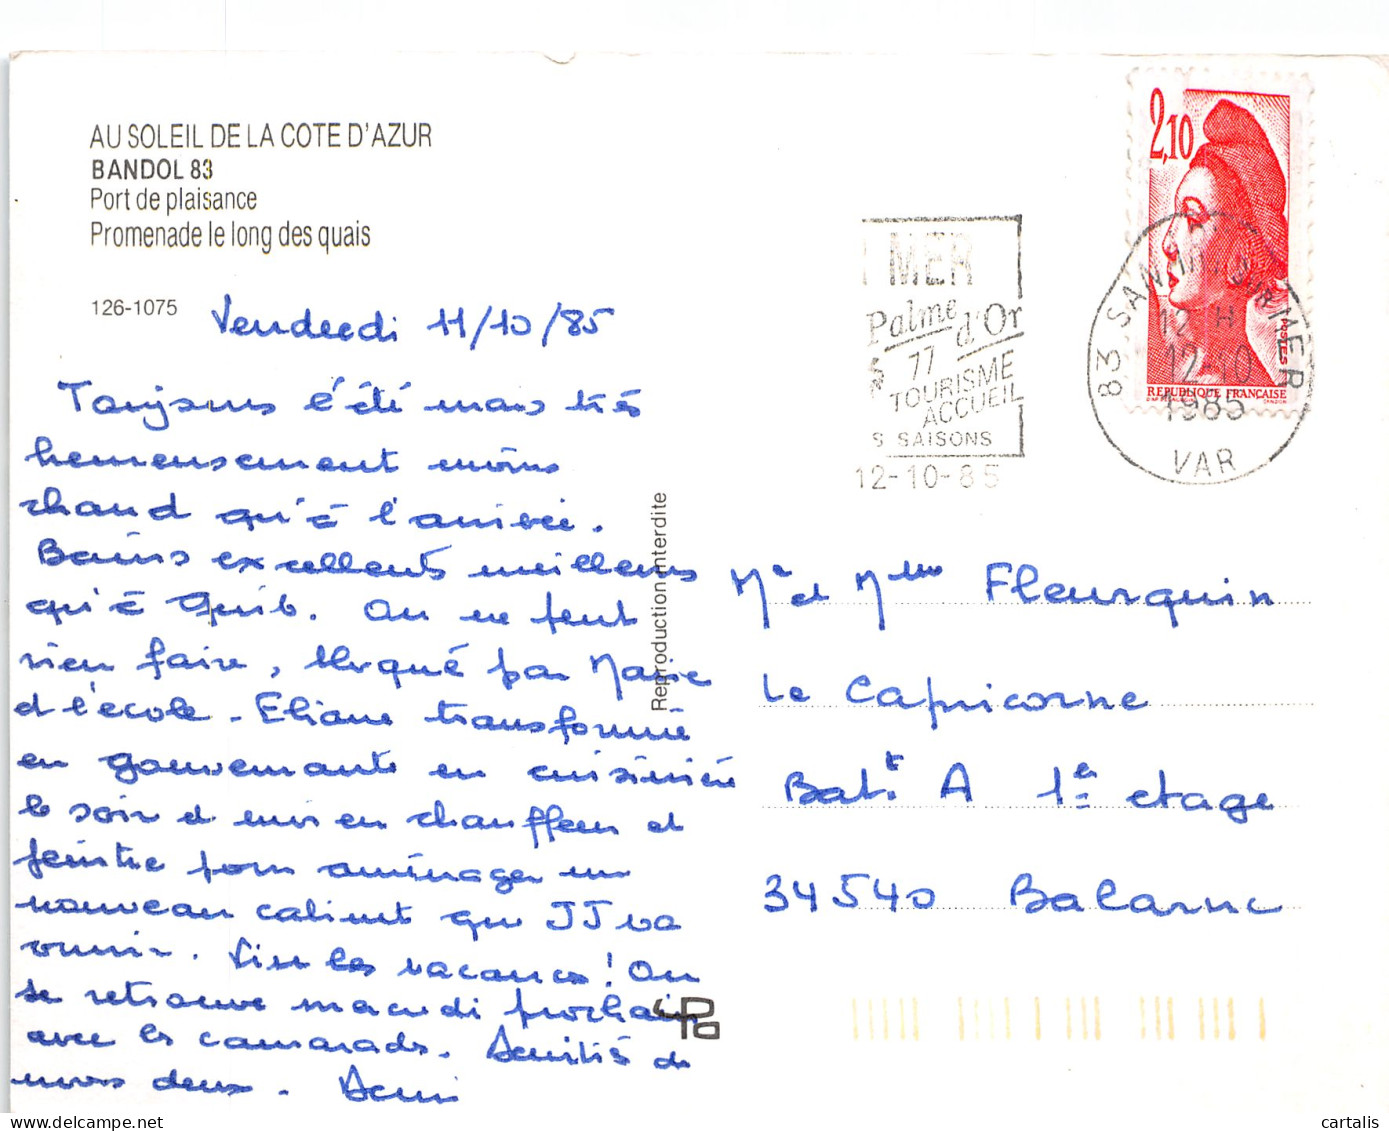 AU SOLEIL DE LA COTE D'AZUR
BANDOL 83
Port de plaisance
Promenade le long des quais
126-1075
Vendredi 11/10/85
Toujours l'été mais très
heureusement moins
chaud qu'à l'arrivée.
Bains excellents meilleurs
qu'à Quib. On ne peut
rien faire, bloqué par Marie
et l'école - Eliane transformée
en gouvernante en cuisinière
le soir et moi en chauffeur et
peintre pour aménager un
nouveau cabinet que JJ va
ouvrir. Vive les vacances! On
se retrouve mardi prochain
avec les camarades. Amitiés de
nous deux.
Reproduction interdite
2,10
REPUBLIQUE FRANÇAISE
POSTES
MER
Palme
d'Or
77
TOURISME
ACCUEIL
S SAISONS
12-10-85
83 SAN SUR MER
12 H
12-10
1985
VAR
Mr et Mme Fleurquin
Le Capricorne
Batt A 1er etage
34540 Balaruc